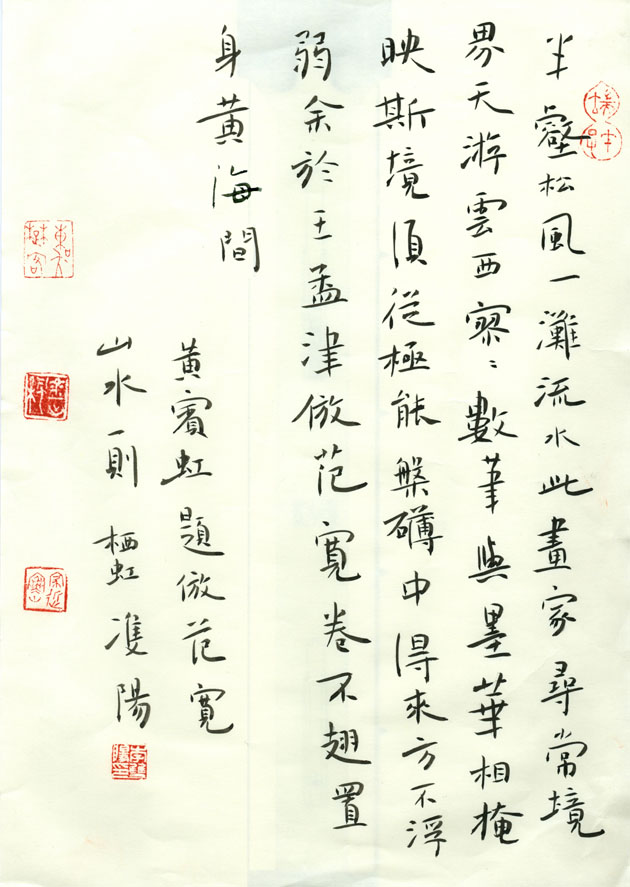 半壑松風一灘流水此畫家尋常境
界天游雲西寥〻數筆與墨華相掩
映斯境須從極能槃礴中得來方不浮
弱余於王孟津倣范寬卷不翅置
身黃海間
黃賓虹題倣范寬
山水一則 栖虹 陽